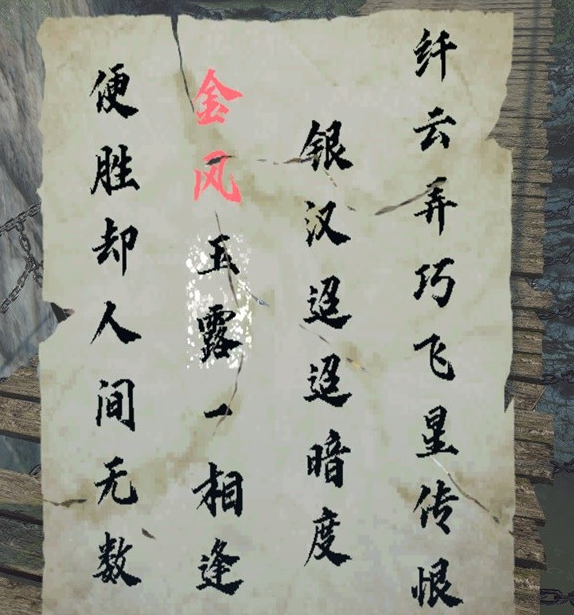 纤云弄巧飞星传恨
银汉迢迢暗度
金风玉露一相逢
便胜却人间无数